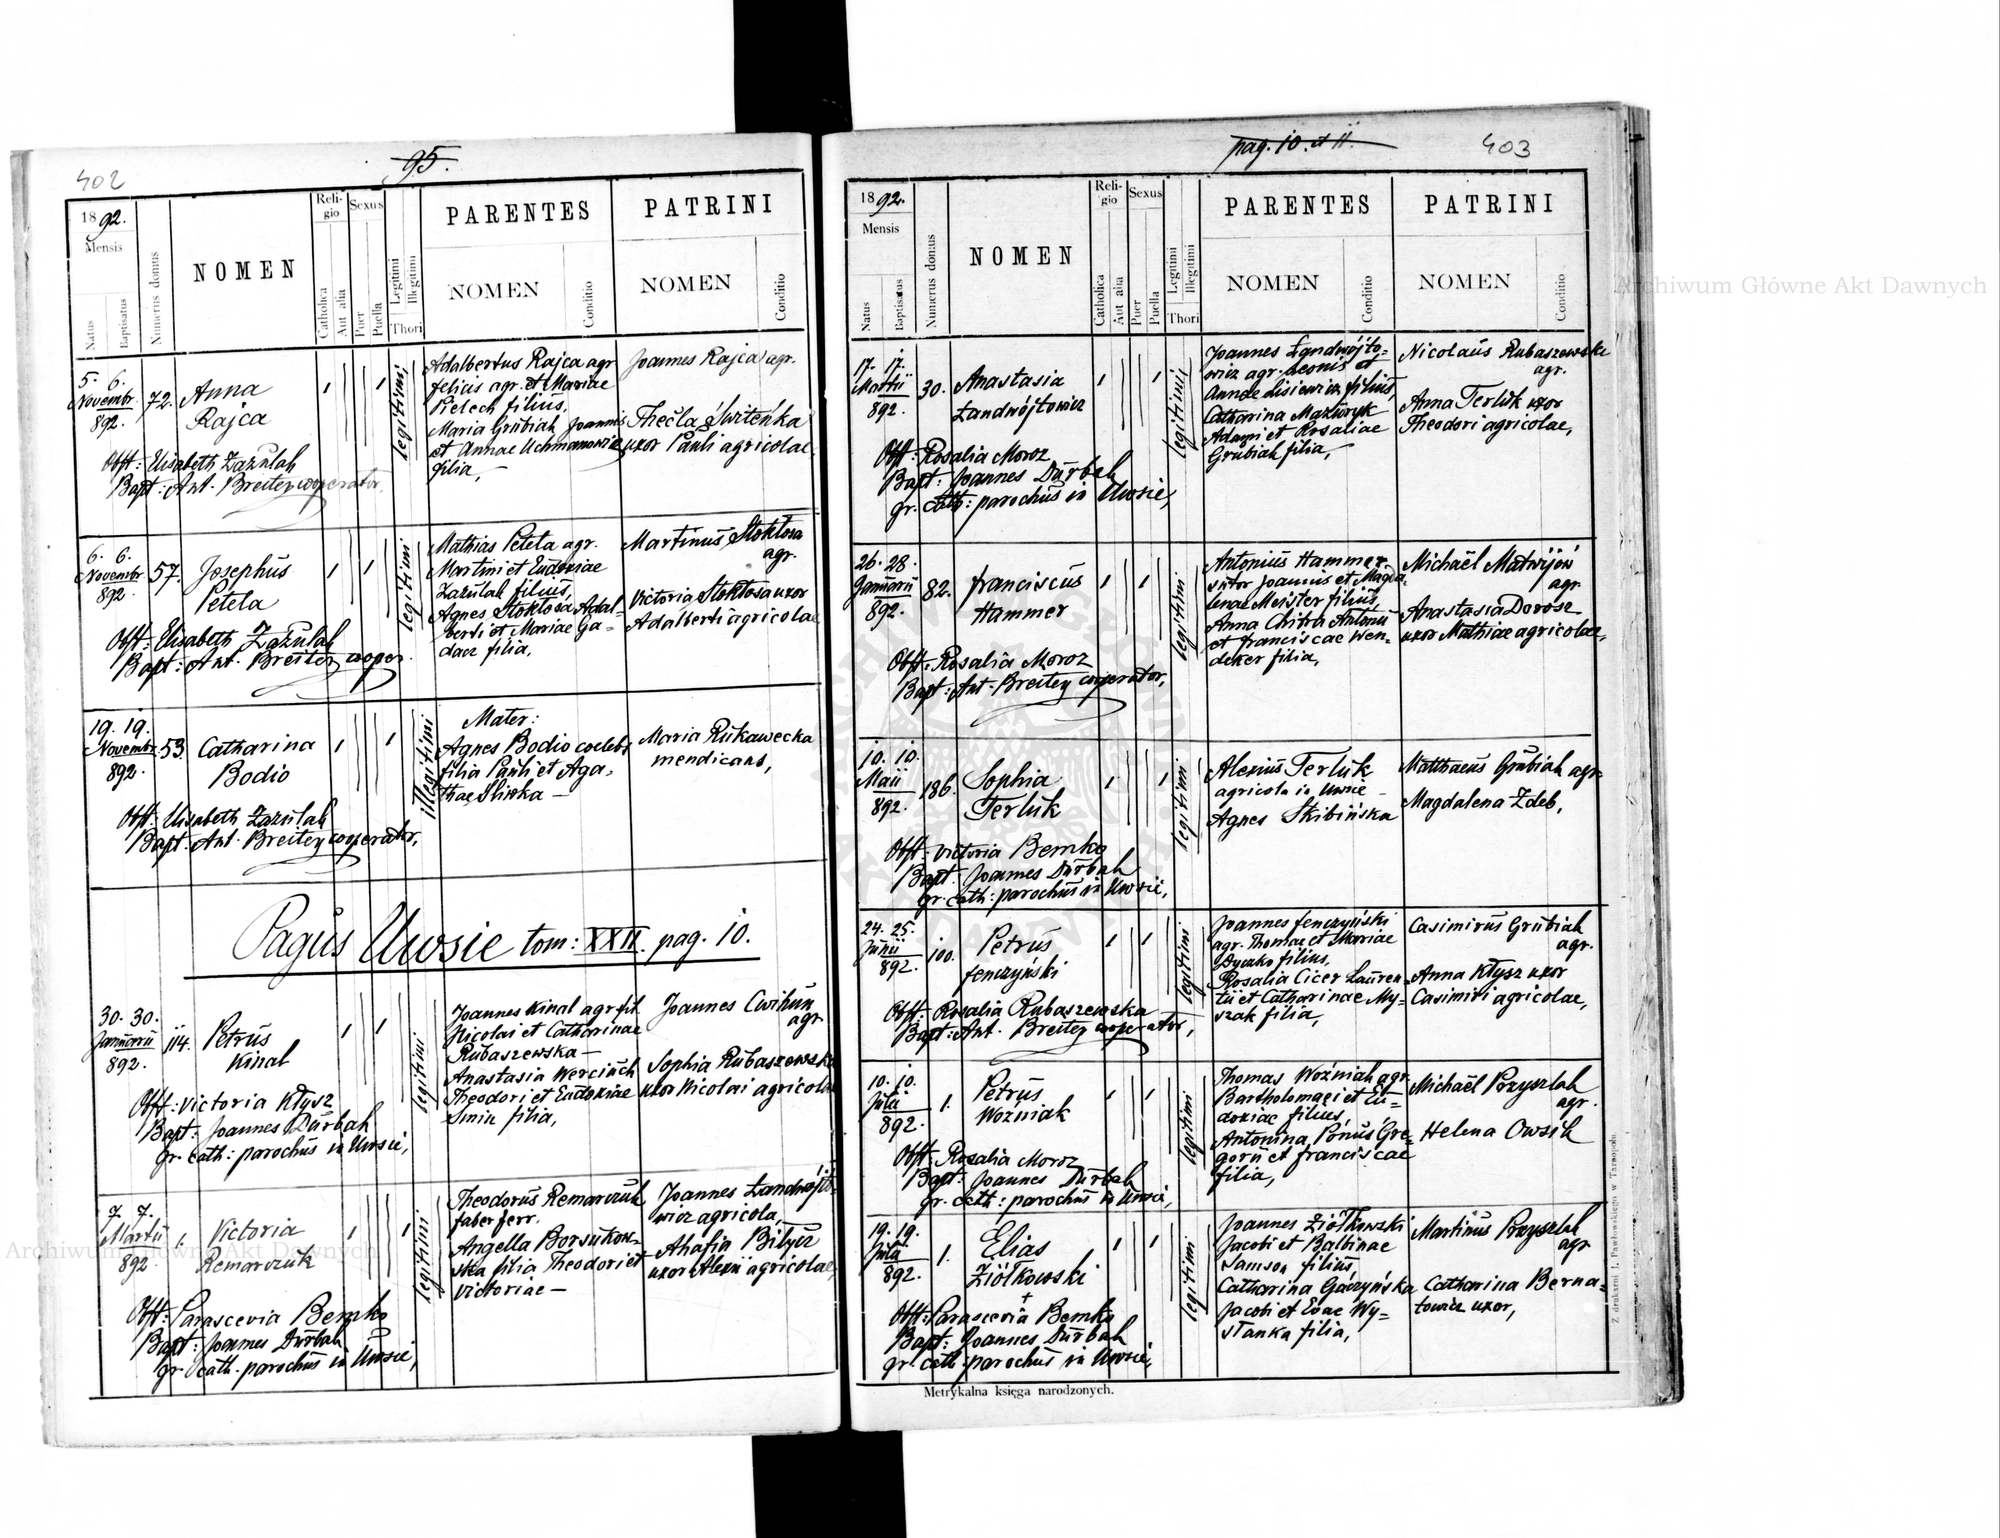 402
95.
1892.
Mensis
Natus
Baptisatus
Numerus domus
NOMEN
Religio
Catholica
Aut alia
Sexus
Puer
Puella
Legitimi
Illegitimi
Thori
PARENTES
NOMEN
Conditio
PATRINI
NOMEN
Conditio
5. 6.
Novembr.
892.
72.
Anna
Rajca
legitimi
Adalbertus Rajca agr
felicis agr. et Mariae
Pielech filius,
Maria Grubiak Joannis
et Annae Uchmanowicz
filia,
Joannes Rajca agr.
Thecla Switeńka
uxor Pauli agricolae
Obst: Elisabeth Zazulak
Bapt: Ant. Breitey cooperator,
6. 6.
Novembr
892
57.
Josephus
Petela
legitimi
Mathias Petela agr.
Martini et Eudoxiae
Zazulak filius,
Agnes Stokłosa Adal-
berti et Mariae Ga-
dacz filia,
Martinus Stokłosa
agr.
Victoria Stokłosa uxor
Adalberti agricolae
Obst: Elisabeth Zazulak
Bapt: Ant. Breitey cooper.
19. 19.
Novembr.
892.
53.
Catharina
Bodio
illegitimi
Mater:
Agnes Bodio coelebs
filia Pauli et Aga-
thae Sliwka —
Maria Rukawecka
mendicans,
Obst: Elisabeth Zazulak
Bapt. Ant. Breitey cooperator,
Pagus Uwsie tom: XXII. pag. 10.
30. 30.
Januarii
892.
114.
Petrus
Kinal
legitimi
Joannes Kinal agr fil
Nicolai et Catharinae
Rubaszewska —
Anastasia Werciuch
Theodori et Eudoxiae
Smiu filia,
Joannes Cwihun
agr
Sophia Rubaszewska
uxor Nicolai agricolae
Obst: Victoria Kłysz
Bapt: Joannes Durbak
gr. cath: parochus in Uwsie,
7. 7.
Martii
892
1.
Victoria
Remarczuk
legitimi
Theodorus Remarczuk
faber ferr.
Angella Borsukow-
ska filia Theodori et
Victoriae —
Joannes Łandwójto-
wicz agricola,
Ahafia Bilycz
uxor Alexii agricolae,
Obst: Parascevia Bemko
Bapt: Joannes Durbak
gr. cath. parochus in Uwsie,
pag. 10. et 11.
403
1892.
Mensis
Natus
Baptisatus
Numerus domus
NOMEN
Religio
Catholica
Aut alia
Sexus
Puer
Puella
Legitimi
Illegitimi
Thori
PARENTES
NOMEN
Conditio
PATRINI
NOMEN
Conditio
17. 17.
Martii
892.
30.
Anastasia
Łandwójtowicz
legitimi,
Joannes Łandwójto-
wicz agr. Leonis et
Annae Lisiewicz filius,
Catharina Mazuryk
Adami et Rosaliae
Grubiak filia,
Nicolaus Rubaszewski
agr.
Anna Terluk uxor
Theodori agricolae,
Obst: Rosalia Moroz
Bapt: Joannes Durbak
gr. cath: parochus in Uwsie,
26. 28.
Januarii
892.
82.
franciscus
Hammer
legitimi
Antonius Hammer
sutor Joannis et Magda-
lenae Meister filius,
Anna Chitra Antonii
et franciscae Wen-
deker filia,
Michaël Matwijów
agr
Anastasia Dorosz
uxor Mathiae agricolae,
Obst: Rosalia Moroz
Bapt: Ant. Breitey cooperator,
10. 10.
Maii
892.
186.
Sophia
Terluk
legitimi
Alexius Terluk
agricola in Uwsie -
Agnes Skibińska
Matthaeus Grubiak agr.
Magdalena Zdeb,
Obst: Victoria Bemko
Bapt: Joannes Durbak
gr. cath: parochus in Uwsie,
24. 25.
Junii
892.
100.
Petrus
fenczyński
legitimi
Joannes fenczyński
agr. Thomae et Mariae
Dyczko filius,
Rosalia Cicer Lauren-
tii et Catharinae My-
szak filia,
Casimirus Grubiak
agr.
Anna Kłysz uxor
Casimiri agricolae,
Obst: Rosalia Rubaszewska
Bapt: Ant. Breitey cooperator,
10. 10.
Julii
892.
1.
Petrus
Woźniak
legitimi
Thomas Woźniak agr.
Bartholomaei et Eu-
doxiae filius,
Antonina Ponus Gre-
gorii et franciscae
filia,
Michaël Przyszlak
agr.
Helena Owsik
Obst: Rosalia Moroz
Bapt: Joannes Durbak
gr. cath: parochus in Uwsie,
19. 19.
Julii
892.
1.
Elias
Ziółkowski
+
legitimi
Joannes Ziółkowski
Jacobi et Balbinae
Samson filius,
Catharina Gaczyńska
Jacobi et Evae Wy-
słanka filia,
Martinus Przyszlak
agr
Catharina Berna-
towicz uxor,
Obst: Parascevia Bemko
Bapt: Joannes Durbak
gr. cath: parochus in Uwsie,
Metrykalna księga narodzonych.
Z drukarni J. Pawłowskiego w Tarnopolu.
Archiwum Główne Akt Dawnych
Archiwum Główne Akt Dawnych